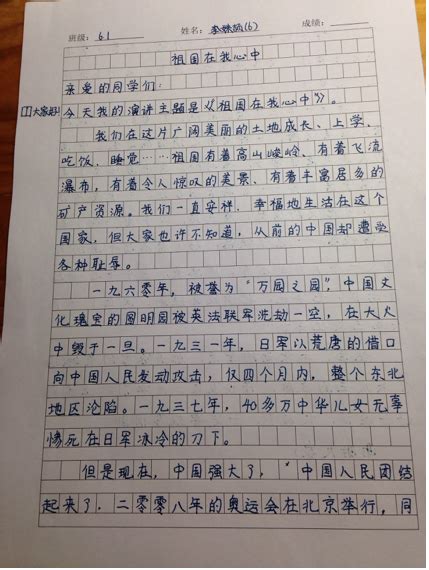 班级：61 姓名：(6) 成绩：
祖国在我心中
亲爱的同学们：
[1]大家好!
今天我的演讲主题是《祖国在我心中》。
我们在这片广阔美丽的土地成长、上学、
吃饭、睡觉……祖国有着高山峻岭、有着飞流
瀑布，有着令人惊叹的美景、有着丰富居多的
矿产资源。我们一直安祥、幸福地生活在这个
国家，但大家也许不知道，从前的中国却遭受
各种耻辱。
一九六零年，被誉为“万园之园”，中国文
化瑰宝的圆明园被英法联军洗劫一空，在大火
中毁于一旦。一九三一年，日军以荒唐的借口
向中国人民发动攻击，仅四个月内，整个东北
地区沦陷。一九三七年，40多万中华儿女无辜
惨死在日军冰冷的刀下。
但是现在，中国强大了，“中国人民团结
起来了，二零零八年的奥运会在北京举行，同